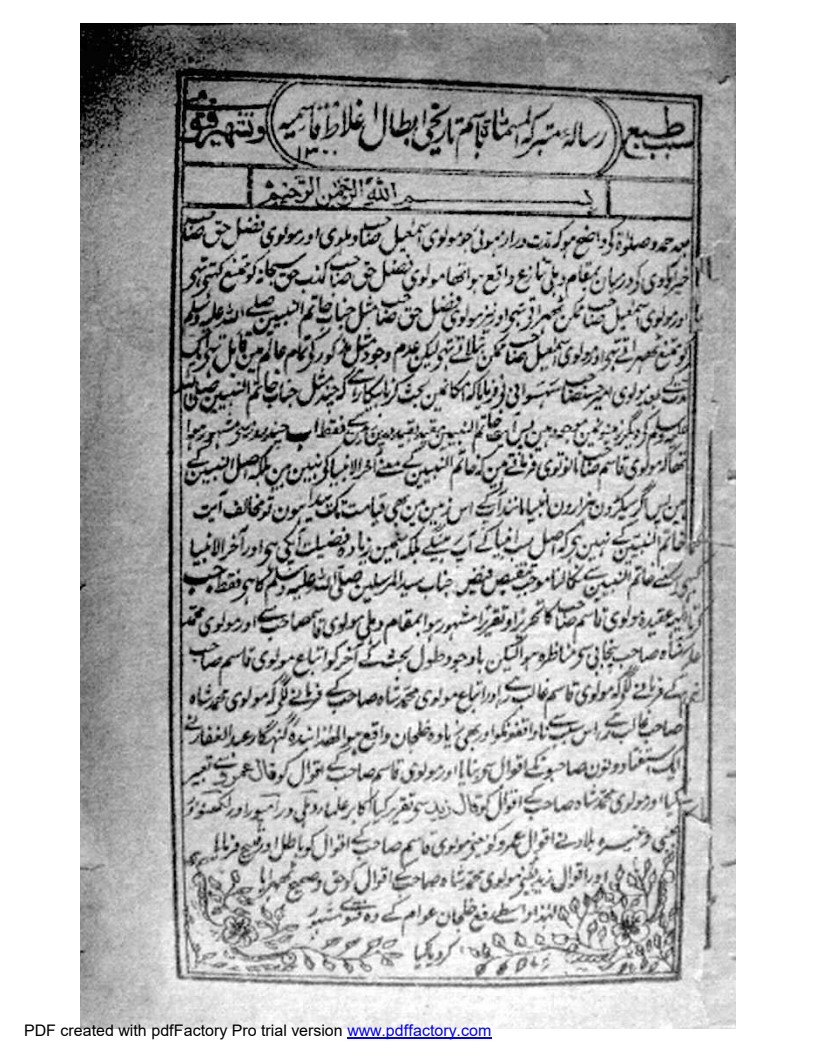 سبب طبع
رسالۂ متبرکہ المسماۃ باسم تاریخی ابطال اغلاط قاسمیہ
۱۳۰۰
وتشہیر فتوی
بسم اللہ الرحمن الرحیم
بعد حمد و صلوۃ کی واضح ہو کہ مدت دراز ہوئی جو مولوی اسمعیل صاحب دہلوی اور مولوی فضل حق صاحب
خیرآبادی کی درمیان بمقام دہلی تنازع واقع ہوا تھا مولوی فضل حق صاحب کذب حق سبحانہ کو ممتنع کہتی تہی
اور مولوی اسمعیل صاحب ممکن ٹھہراتی تہی اور نیز مولوی فضل حق صاحب مثل جناب خاتم النبیین صلے اللہ علیہ وسلم
کو ممتنع ٹھہراتے تہی اور مولوی اسمعیل صاحب ممکن بتلاتے تہی لیکن عدم وجود مثل مذکور کی تمام عالم مین قائل تہی ایک
مدت کے بعد مولوی امیر حسن صاحب سہسوانی نی فرمایا کہ امکان مین بحث کرنا بیکار ہے کہ چند مثل جناب خاتم النبیین صلی اللہ
علیہ وسلم کی دیگر زمینونمین موجود ہین پس خاتم النبیین فقط اب چند روز سی مشہور ہوا
تھا کہ مولوی قاسم صاحب نانوتوی فرماتے ہین کہ خاتم النبیین کے معنے آخر الانبیا کی نہین ہین بلکہ اصل النبیین کے
ہین پس اگر سیکڑون ہزارون انبیا مانند آپکے اس زمین مین بھی قیامت تک پیدا ہون تو مخالف آیت
خاتم النبیین کے نہین ہی کہ اصل سب انبیا کے آپ رہینگے بلکہ سمین زیادہ فضیلت آپکی ہی اور آخر الانبیا
کہ معنے خاتم النبیین سے نکالنا موجب تنقیص فیض جناب سید المرسلین صلی اللہ علیہ وسلم کا ہی فقط جب
یہ عقیدہ مولوی قاسم صاحب کا تحریرا و تقریرا مشہور ہوا بمقام دہلی مولوی قاسم صاحب سے اور مولوی محمد
شاہ صاحب پنجابی سی مناظرہ ہوا لیکن باوجود طول بحث کے آخر کو اتباع مولوی قاسم صاحب
کے فرمانے لگی کہ مولوی قاسم غالب رہی اور اتباع مولوی محمد شاہ صاحب کے فرمانے لگی کہ مولوی محمد شاہ
صاحب غالب رہی اس سبب سے ناواقفونکو اور بھی زیادہ خلجان واقع ہوا لہذا بندۂ گنہگار عبد الغفار نے
ایک استفتا دونون صاحبونکے اقوال سی بنایا اور مولوی قاسم صاحب کے اقوال کو قال عمرو سے تعبیر
کیا اور مولوی محمد شاہ صاحب کے اقوال کو قال زید سی تقریر کیا اکابر علماء دہلی و رامپور اور لکھنؤ
بمبئی وغیرہ بلاد نے اقوال عمرو کو یعنی مولوی قاسم صاحب کے اقوال کو باطل اور قبیح فرمایا
اور اقوال زید یعنی مولوی محمد شاہ صاحب کے اقوال کو حق و صحیح ٹھہرایا
لہذا واسطے رفع خلجان عوام کے وہ فتوے مشتہر
کردیا گیا
PDF created with pdfFactory Pro trial version www.pdffactory.com